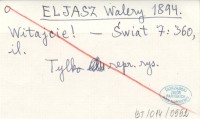 ELJASZ Walery 1894.
Witajcie! — Świat 7: 360,
il.
Tylko repr. rys.